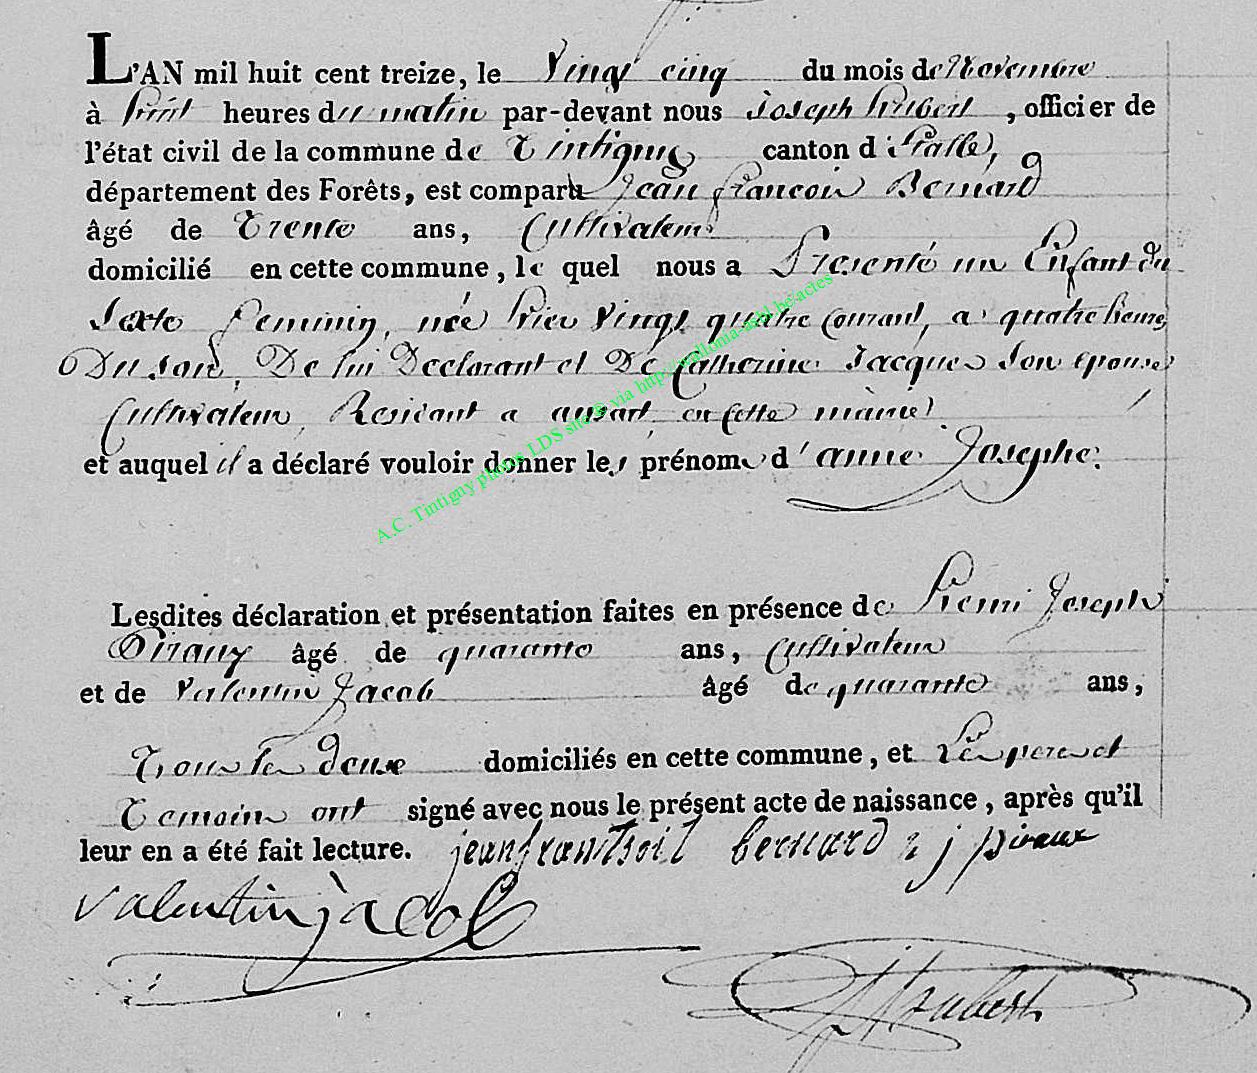 L'AN mil huit cent treize, le Vingt cinq du mois de Novembre
à huit heures du matin par-devant nous Joseph hubert, officier de
l'état civil de la commune de Tintigny canton d'Etalle,
département des Forêts, est comparu Jean françois Bernard
âgé de Trente ans, Cultivateur
domicilié en cette commune, le quel nous a Presenté un Enfant du
Sexe feminin, née hier vingt quatre courant, a quatre heures
Du soir, De lui Declarant et De Catherine Jacques son epouse
Cultivateur, Residant a ansart en cette mairie
et auquel il a déclaré vouloir donner les prénoms d'anne Josephe.
Lesdites déclaration et présentation faites en présence de henri Joseph
Piraux âgé de quarante ans, cultivateur
et de Valentin Jacob âgé de quarante ans,
Tous les deux domiciliés en cette commune, et Les pere et
Temoins ont signé avec nous le présent acte de naissance, après qu'il
leur en a été fait lecture. jean bernard j piraux
valentin jacob
hubert
A.C. Tintigny photos LDS site © via http://wallonia-asbl.be/actes